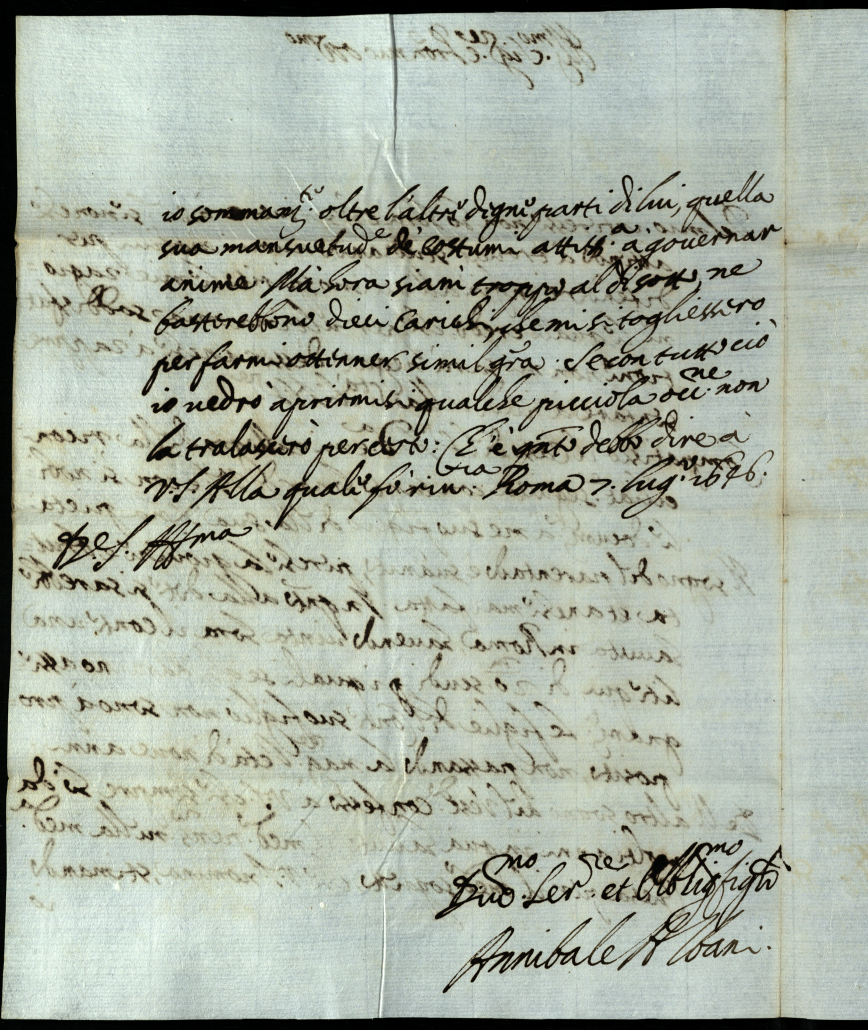 io sommam.te oltre l'altre degne parti di lui, quella
sua mansuetud.e de costumi attiss.a à governar
anime. Mà hora siam troppo al di sotto, ne
basterebbono dieci Carichi che mi si togliessero
per farmi ottenner simil gr̃a. Se con tutto ciò
io vedrò aprirmisi qualche piccola occ.ne non
la tralascierò per certo: Ch'è q̃nto debbo dire à
V.S. Alla quale fò riu.za Roma 7. lug.o 1646.
Di V.S. Ill.ma
Deuo.mo Ser.re et Oblig.mo figlio
Annibale Albani.